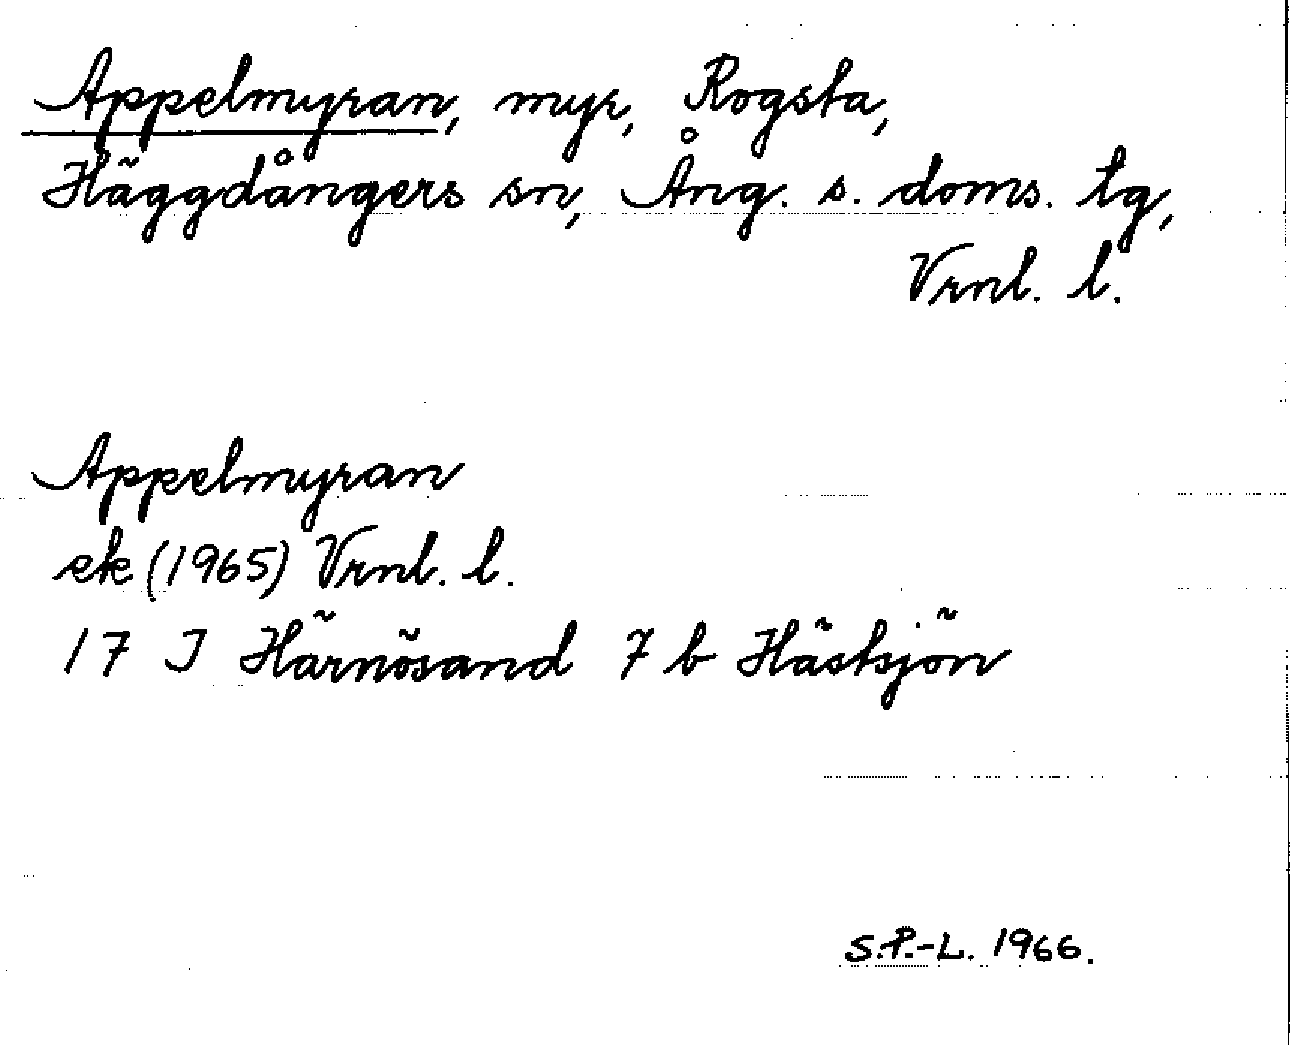 Appelmyran, myr, Rogsta,
Häggdångers sn, Ång. s. doms. tg,
Vrnl. l.
Appelmyran
ek (1965) Vrnl. l.
17 I Härnösand 7 b Hästsjön
S.P.-L. 1966.